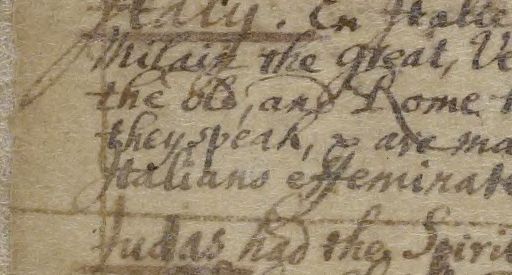 Italy. In Italie
Milain the great, Ve
the old, and Rome t
they speak, & are ma
Italians effeminate
Judas had the Spiri